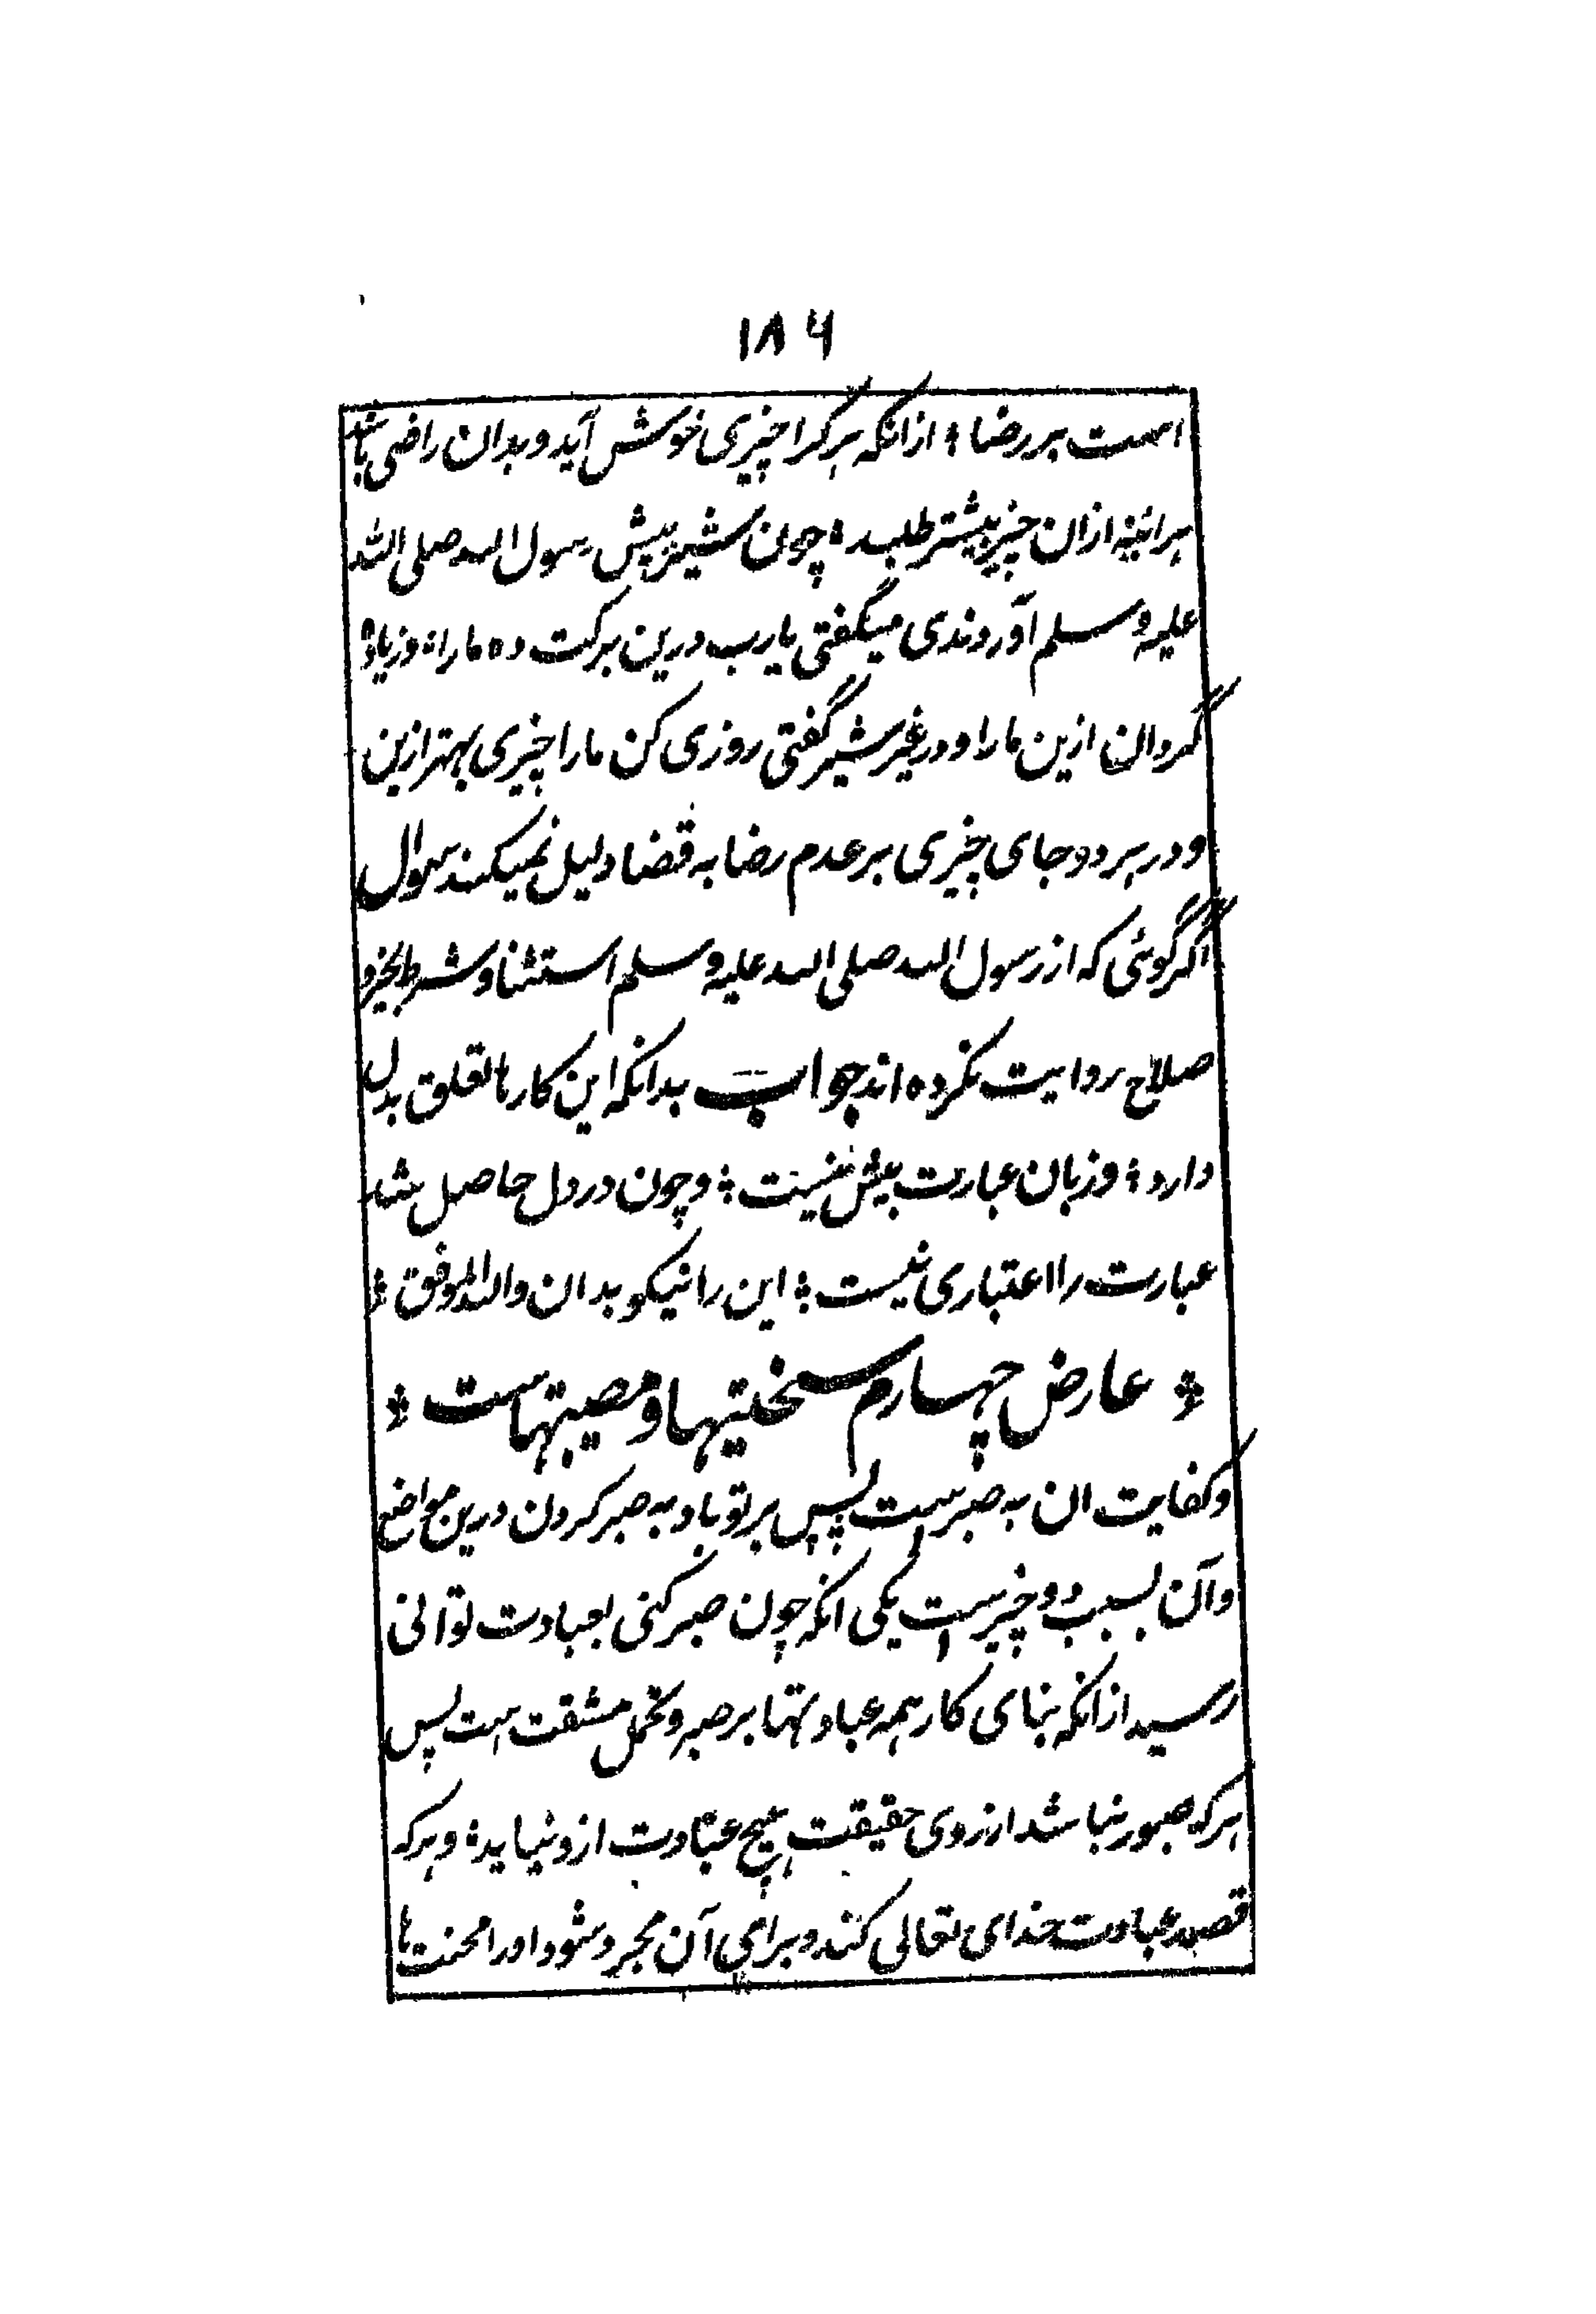 ۱۸۶
است بر رضا ؛ ازانکه هرکرا چیزی خوش آید و بدان راضی باشد
هرآئینه ازان چیز بیشتر طلبد ؛ چون شیر پیش رسول الله صلی الله
علیه وسلم آوردندی میگفتی یارب درین برکت ده مارا ؛ و زیاده
گردان ازین مارا و در غیر شیر گفتی روزی کن مارا چیزی بهتر ازین
و در هر دو جای چیزی بر عدم رضا به قضا دلیل نمیکند سوال
اگر گوئی که از رسول الله صلی الله علیه وسلم استثنا و شرط بخیر و
صلاح روایت نکرده اند جواب بدانکه این کارها تعلق بدل
دارد ؛ و زبان عبارت بیش نیست ؛ و چون در دل حاصل شد
عبارت را اعتباری نیست ؛ این را نیکو بدان والله الموفق ؛
* عارض چهارم سختیها و مصیبتهاست *
و کفایت ان به صبرست پس بر تو باد به صبر کردن درین مواضع
و آن بسبب دو چیزست یکی انکه چون صبر کنی بعبادت توانی
رسید ازانکه بنای کار همه عبادتها بر صبر و تحمل مشقت ست پس
هرکه صبور نباشد از روی حقیقت هیچ عبادت ازو نیاید ؛ و هرکه
قصد عبادت خدای تعالی کند و برای آن مجرد شود اورا محنت ها